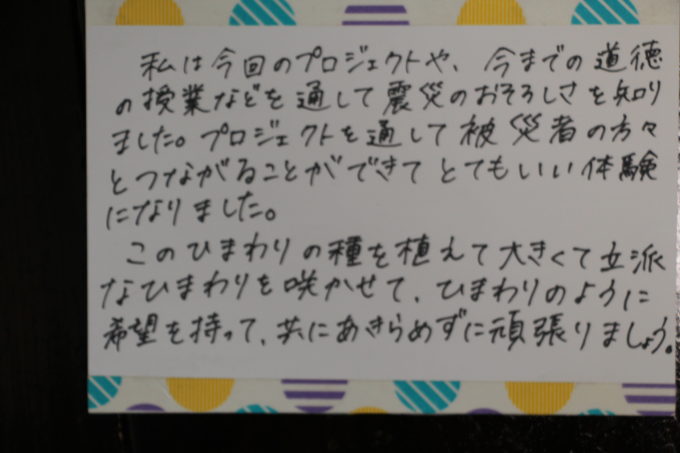 私は今回のプロジェクトや、今までの道徳
の授業などを通して震災のおそろしさを知り
ました。プロジェクトを通して被災者の方々
とつながることができてとてもいい体験
になりました。
このひまわりの種を植えて大きくて立派
なひまわりを咲かせて、ひまわりのように
希望を持って、共にあきらめずに頑張りましょう。